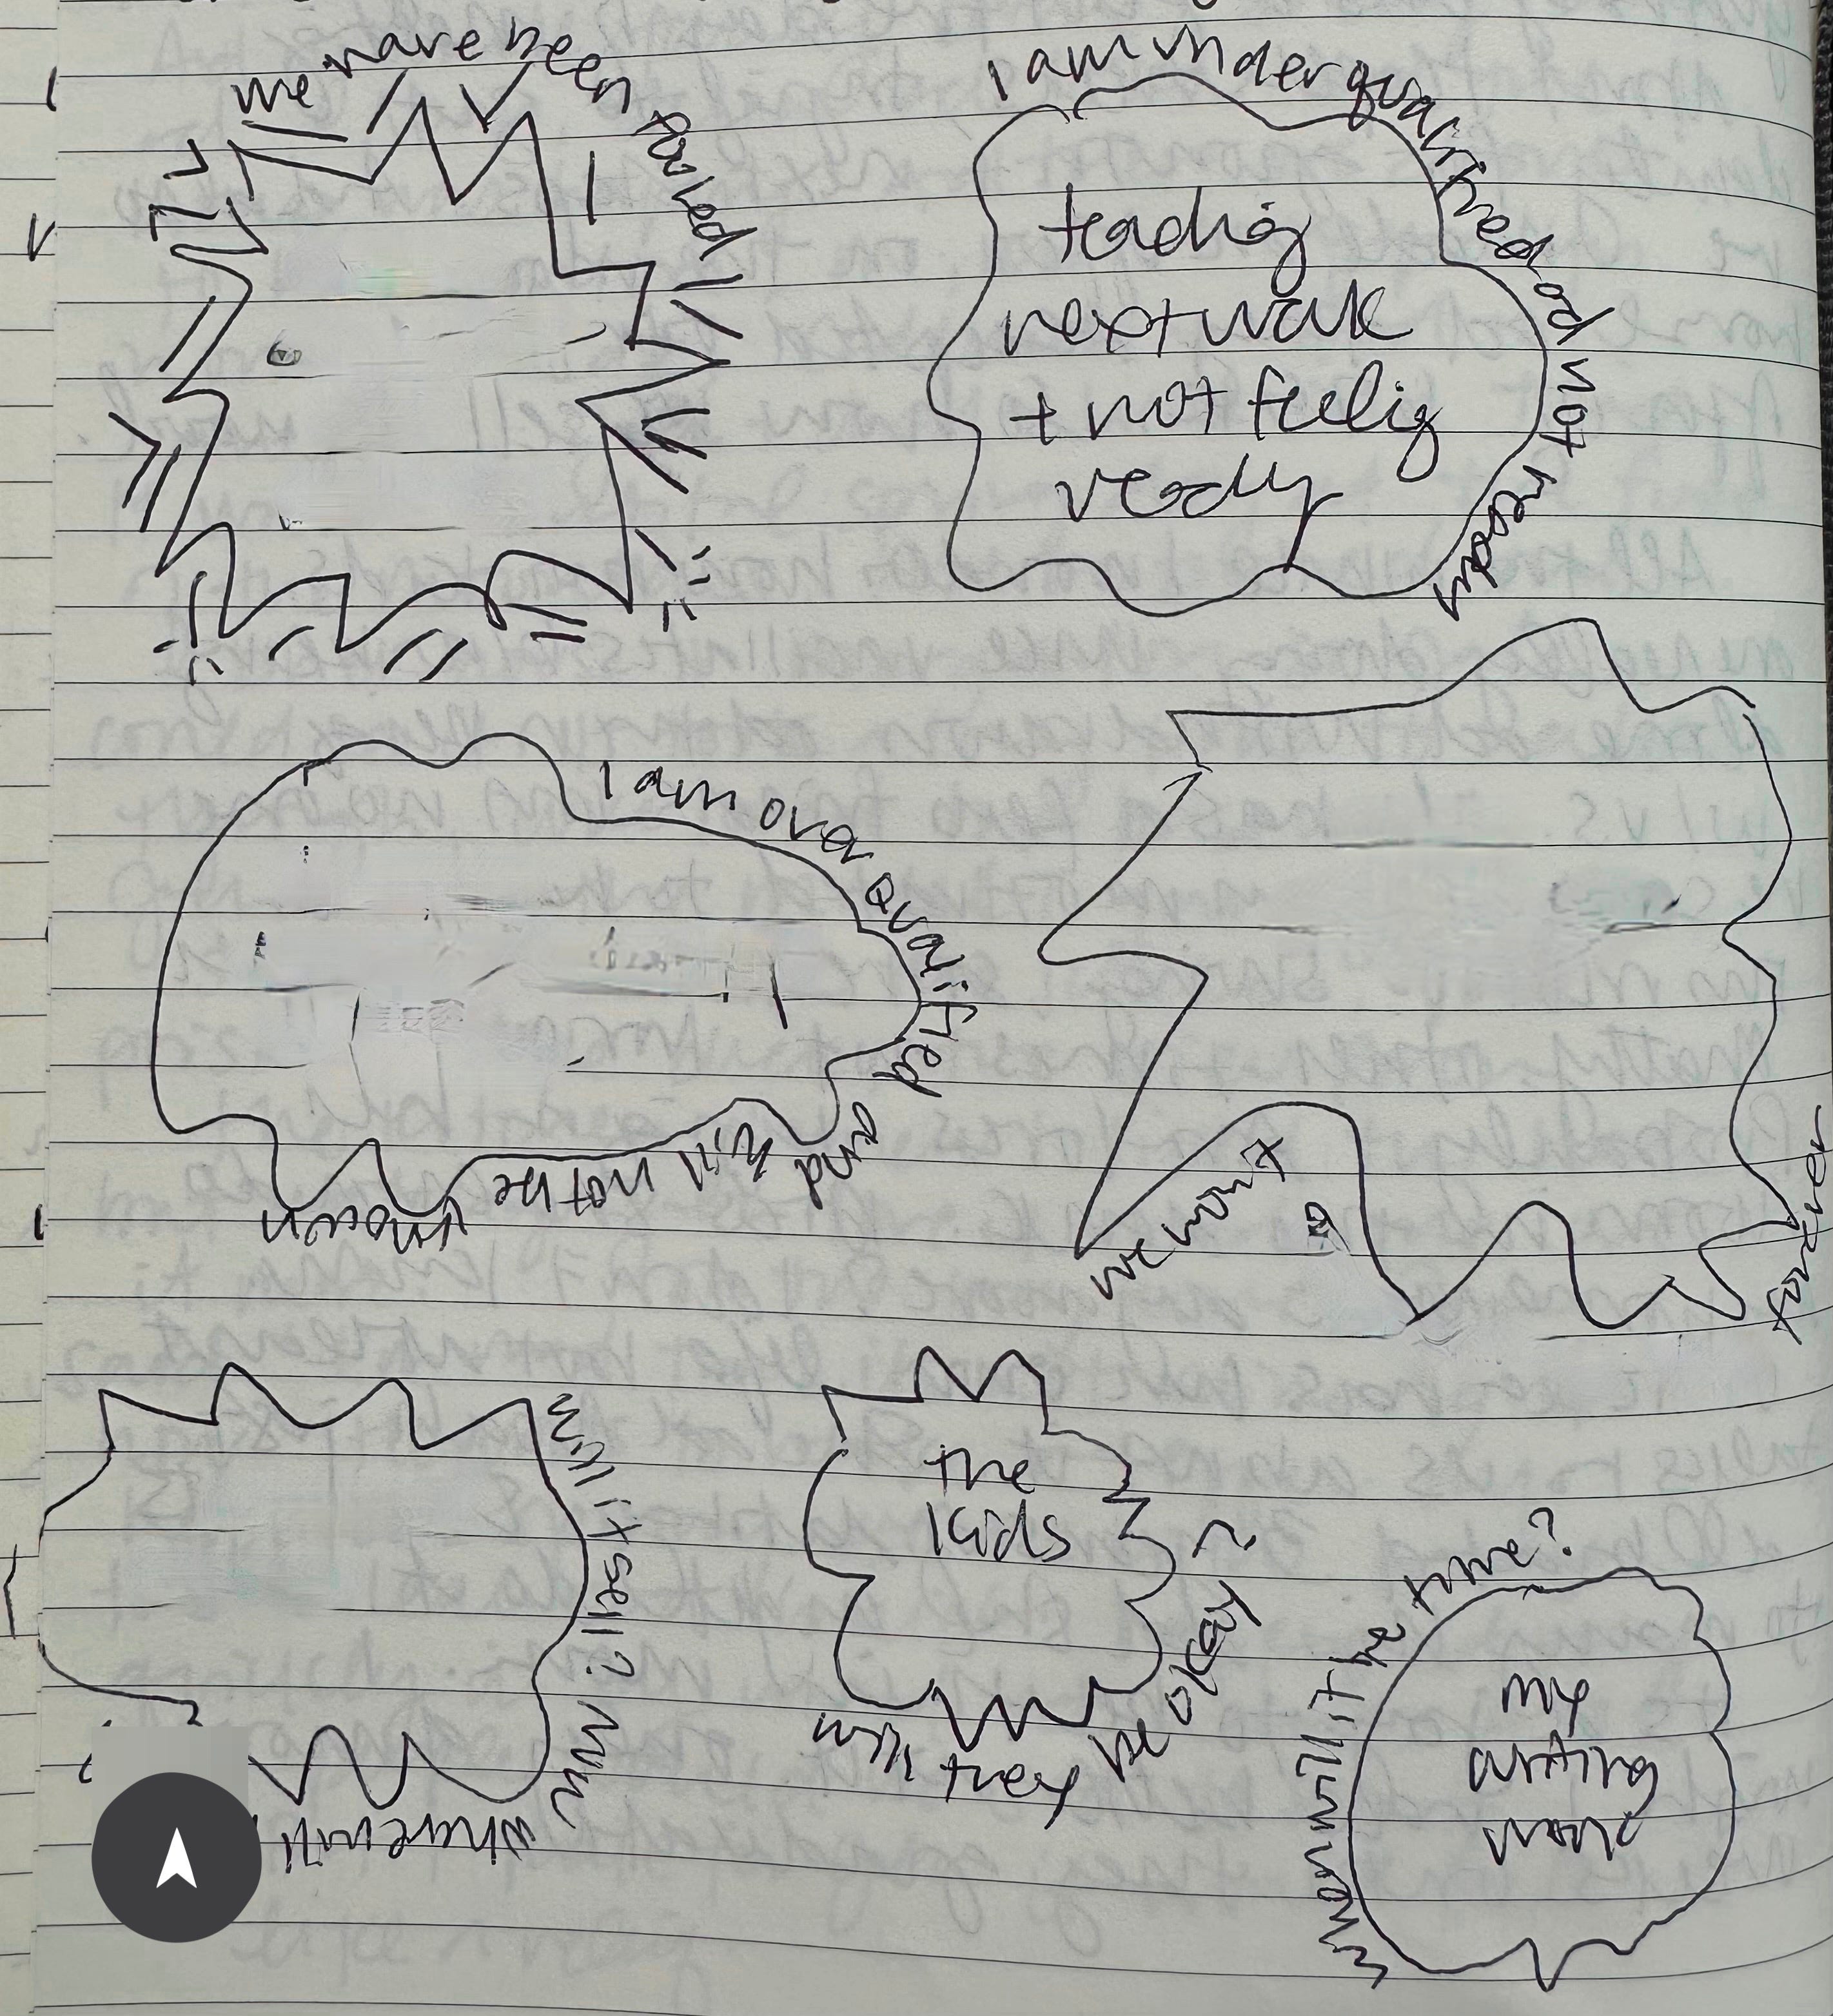 we have been fooled
I am under qualified and not ready
teaching
next week
+ not feeling
ready
I am over qualified and will not be known
we won't
forever
will it sell?
where will
the
kids
will they be okay?
when will it be time?
my
writing
work